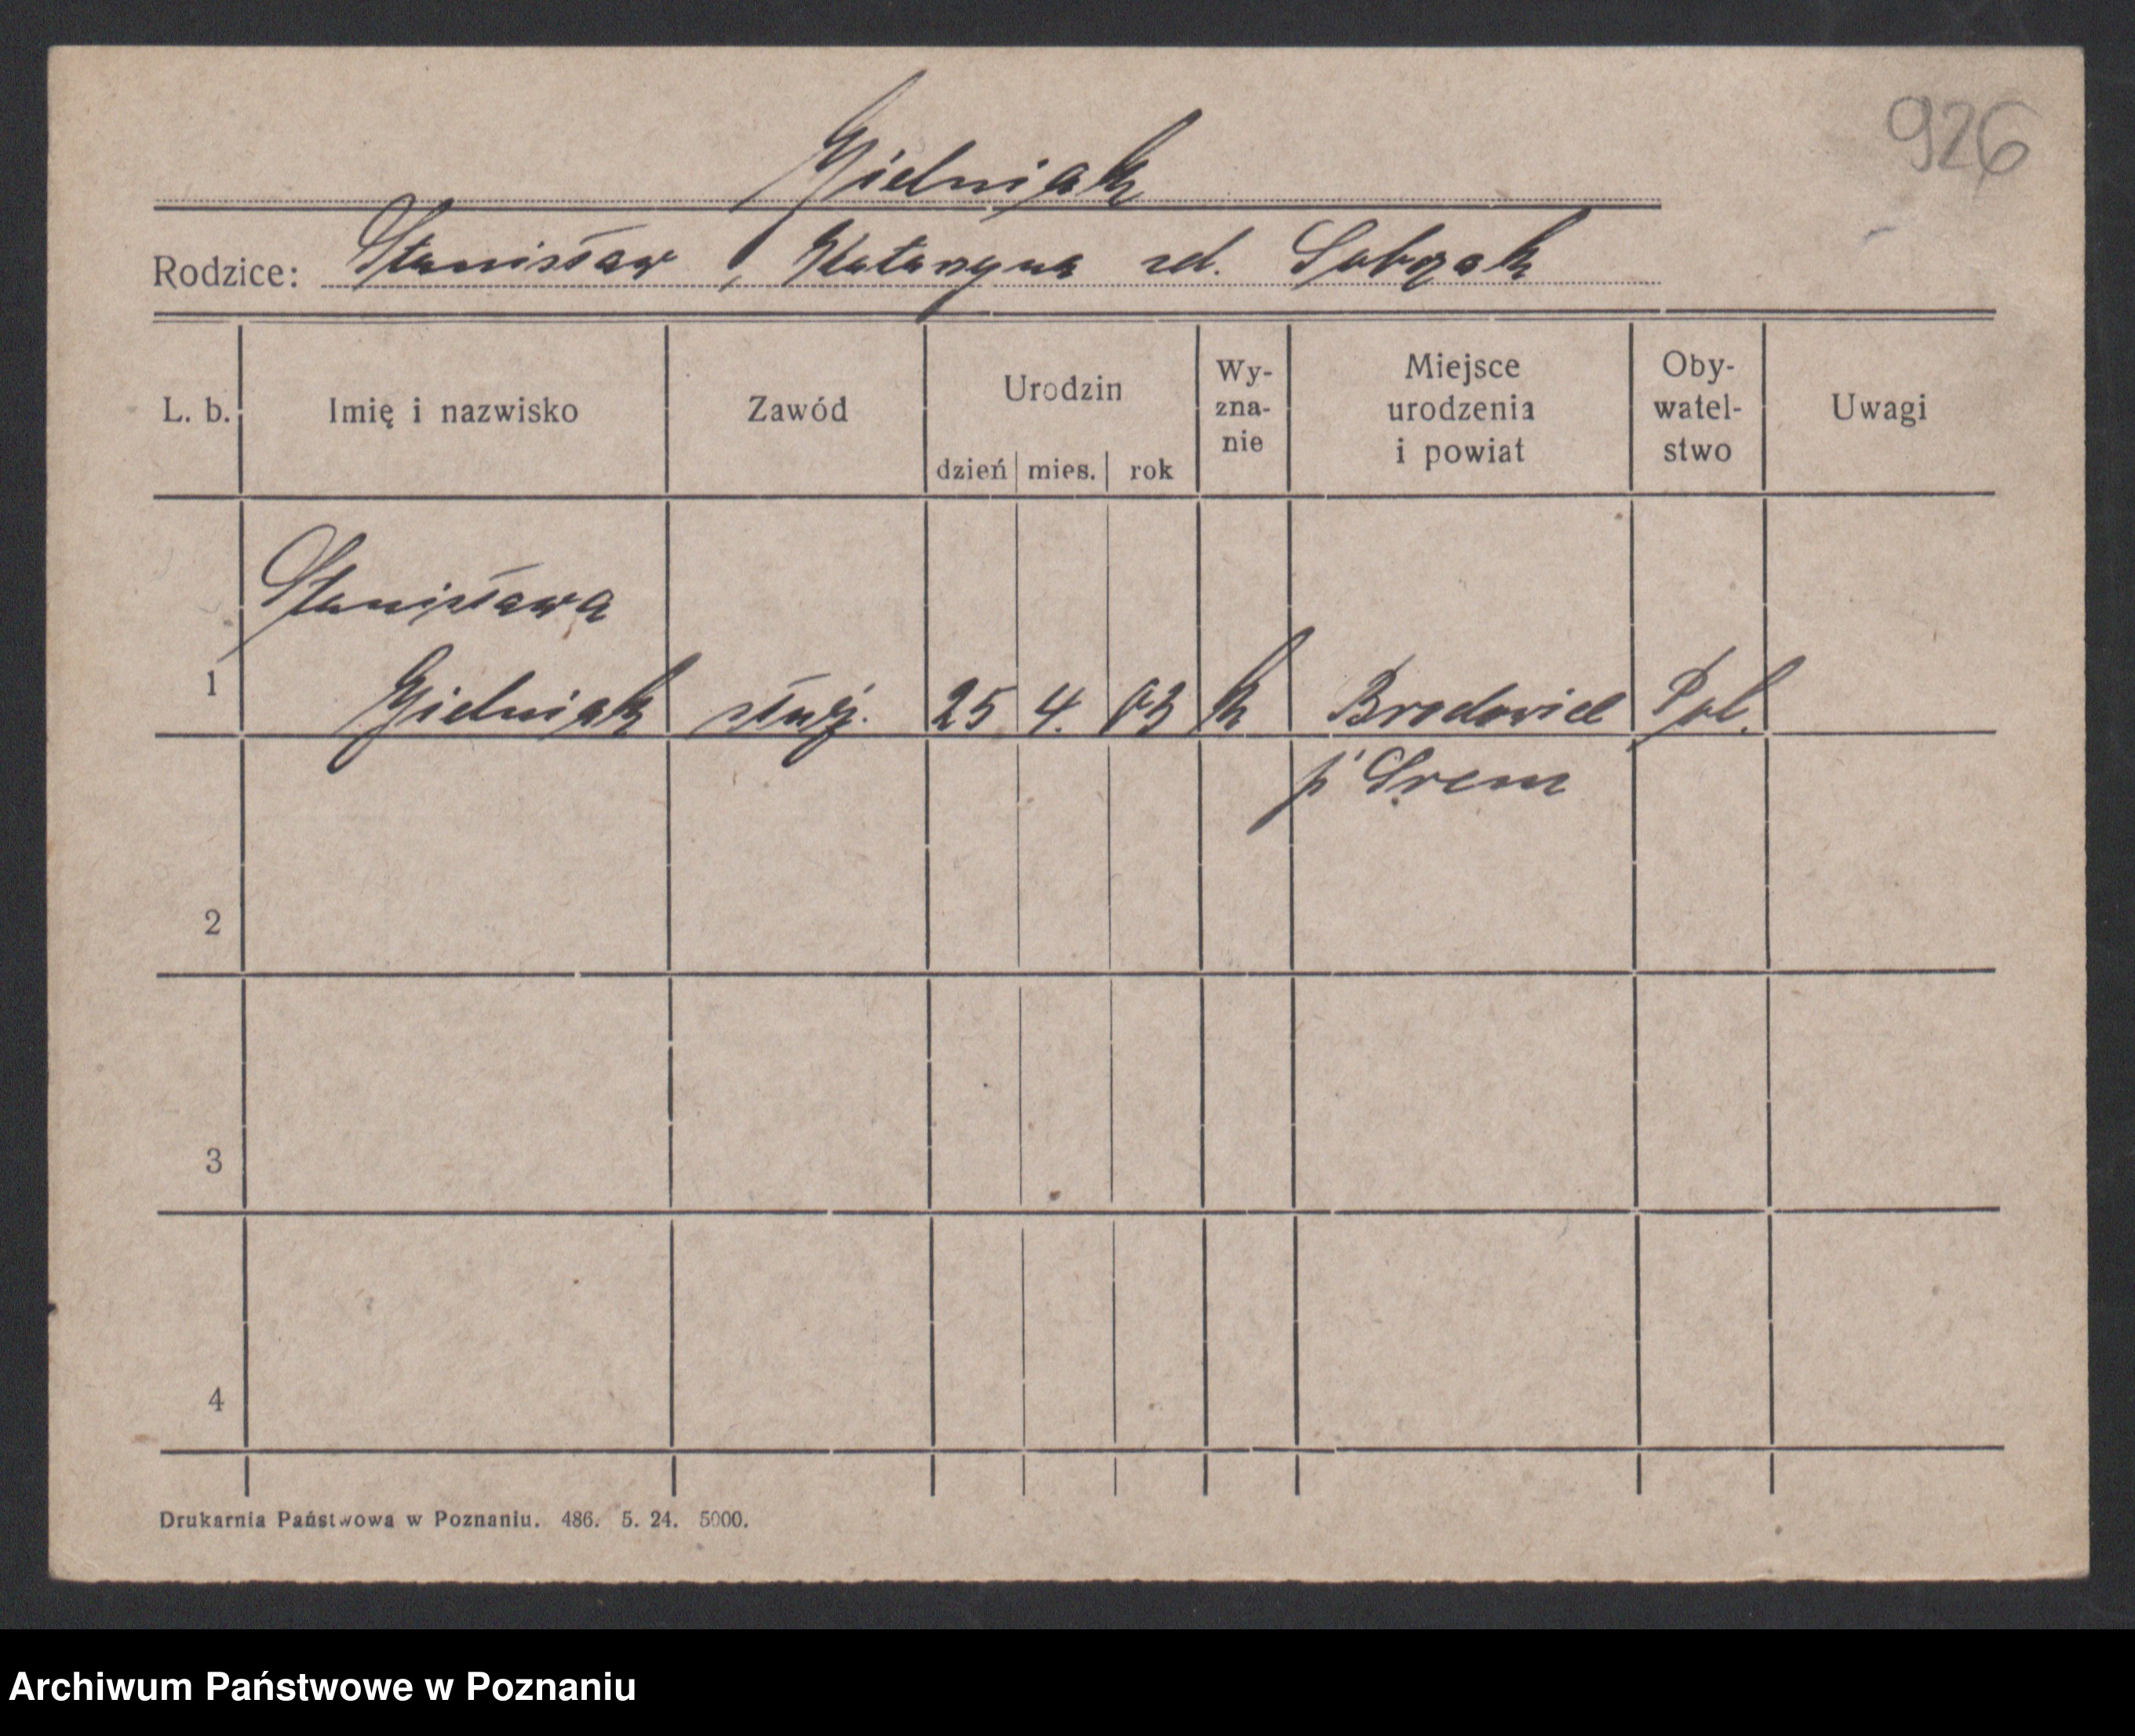 926
Gielniak
Rodzice: Stanisław, Katarzyna zd. Sobczak
L. b. Imię i nazwisko Zawód Urodzin dzień mies. rok Wy-zna-nie Miejsce urodzenia i powiat Oby-watel-stwo Uwagi
Stanisława
1 Gielniak służ. 25 4. 03 k Pol.
p. Śrem
2
3
4
Drukarnia Państwowa w Poznaniu. 486. 5. 24. 5000.
Archiwum Państwowe w Poznaniu